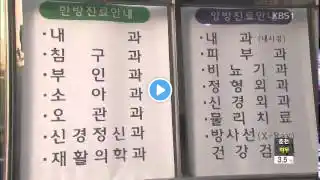 한방진료안내
·내 과
·침 구 과
·부 인 과
·소 아 과
·오 관 과
·신경정신과
·재활의학과
양방진료안내
·내 과 (내시경)
·피 부 과
·비 뇨 기 과
·정 형 외 과
·신 경 외 과
·물 리 치 료
·방 사 선 (X-Ray)
·건 강 검
KBS1
춘천
3.5